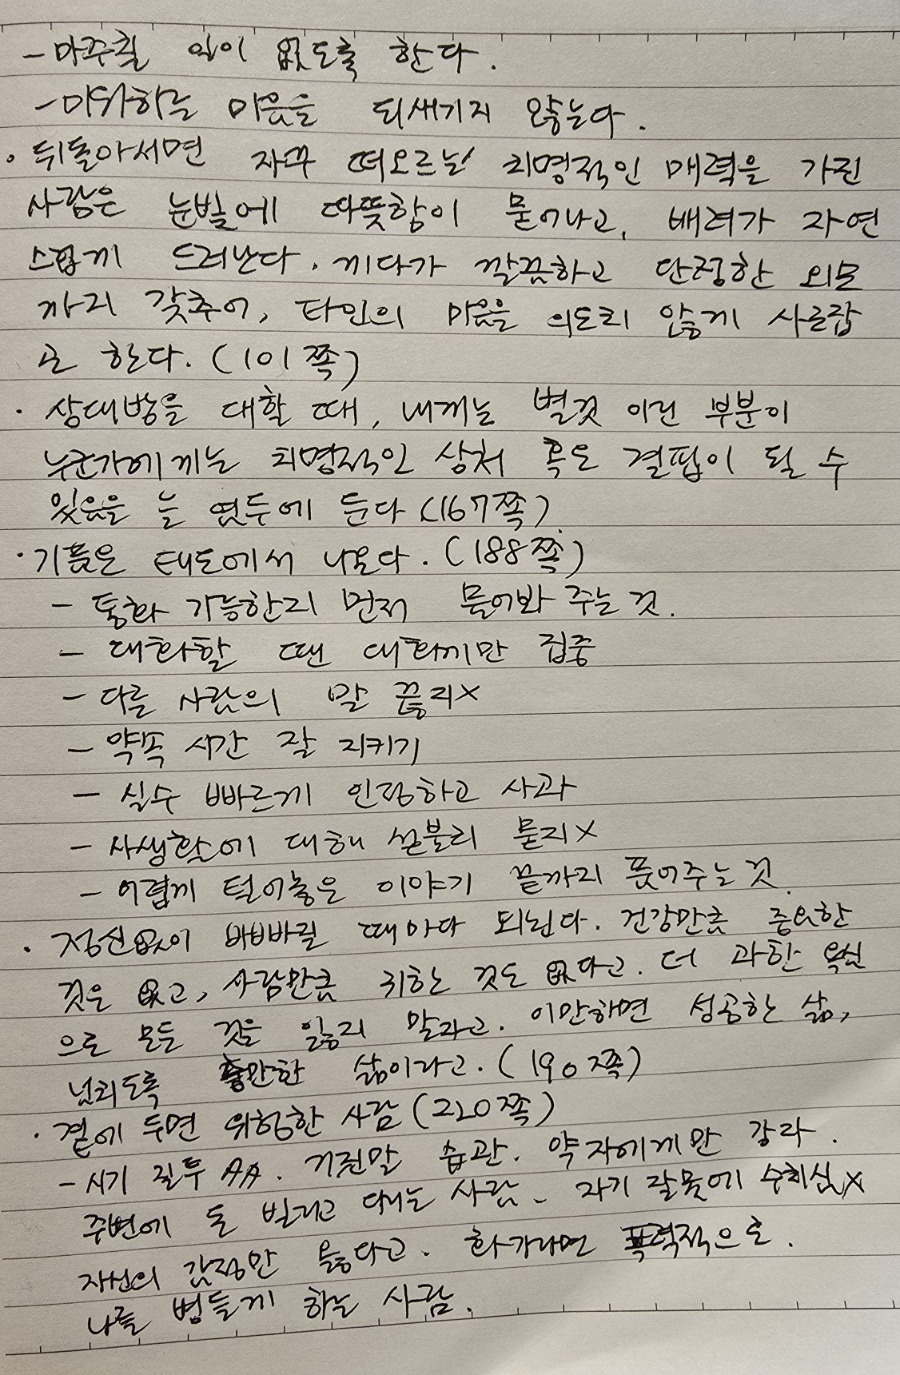 - 마주칠 일이 없도록 한다.
- 미워하는 마음을 되새기지 않는다.
· 뒤돌아서면 자꾸 떠오르는 치명적인 매력을 가진
사람은 눈빛에 따뜻함이 묻어나고, 배려가 자연
스럽게 드러난다. 게다가 깔끔하고 단정한 외모
까지 갖추어, 타인의 마음을 의도치 않게 사로잡
곤 한다. (101쪽)
· 상대방을 대할 때, 내게는 별것 아닌 부분이
누군가에게는 치명적인 상처 혹은 결핍이 될 수
있음을 늘 염두에 둔다 (167쪽)
· 기품은 태도에서 나온다. (188쪽)
- 통화 가능한지 먼저 물어봐 주는 것.
- 대화할 땐 대화에만 집중
- 다른 사람의 말 끊지X
- 약속 시간 잘 지키기
- 실수 빠르게 인정하고 사과
- 사생활에 대해 섣불리 묻지X
- 어렵게 털어놓은 이야기 끝까지 품어주는 것.
· 정신없이 바빠질 때마다 되뇐다. 건강만큼 중요한
것은 없고, 사람만큼 귀한 것도 없다고. 더 과한 욕심
으로 모든 것을 잃지 말라고. 이만하면 성공한 삶,
넘치도록 충만한 삶이라고. (190쪽)
· 곁에 두면 위험한 사람 (220쪽)
- 시기 질투 AA. 거짓말 습관. 약자에게만 강하.
주변에 돈 빌리고 다니는 사람. 자기 잘못에 수치심X
자신의 감정만 옳다고. 화가나면 폭력적으로.
나를 병들게 하는 사람.